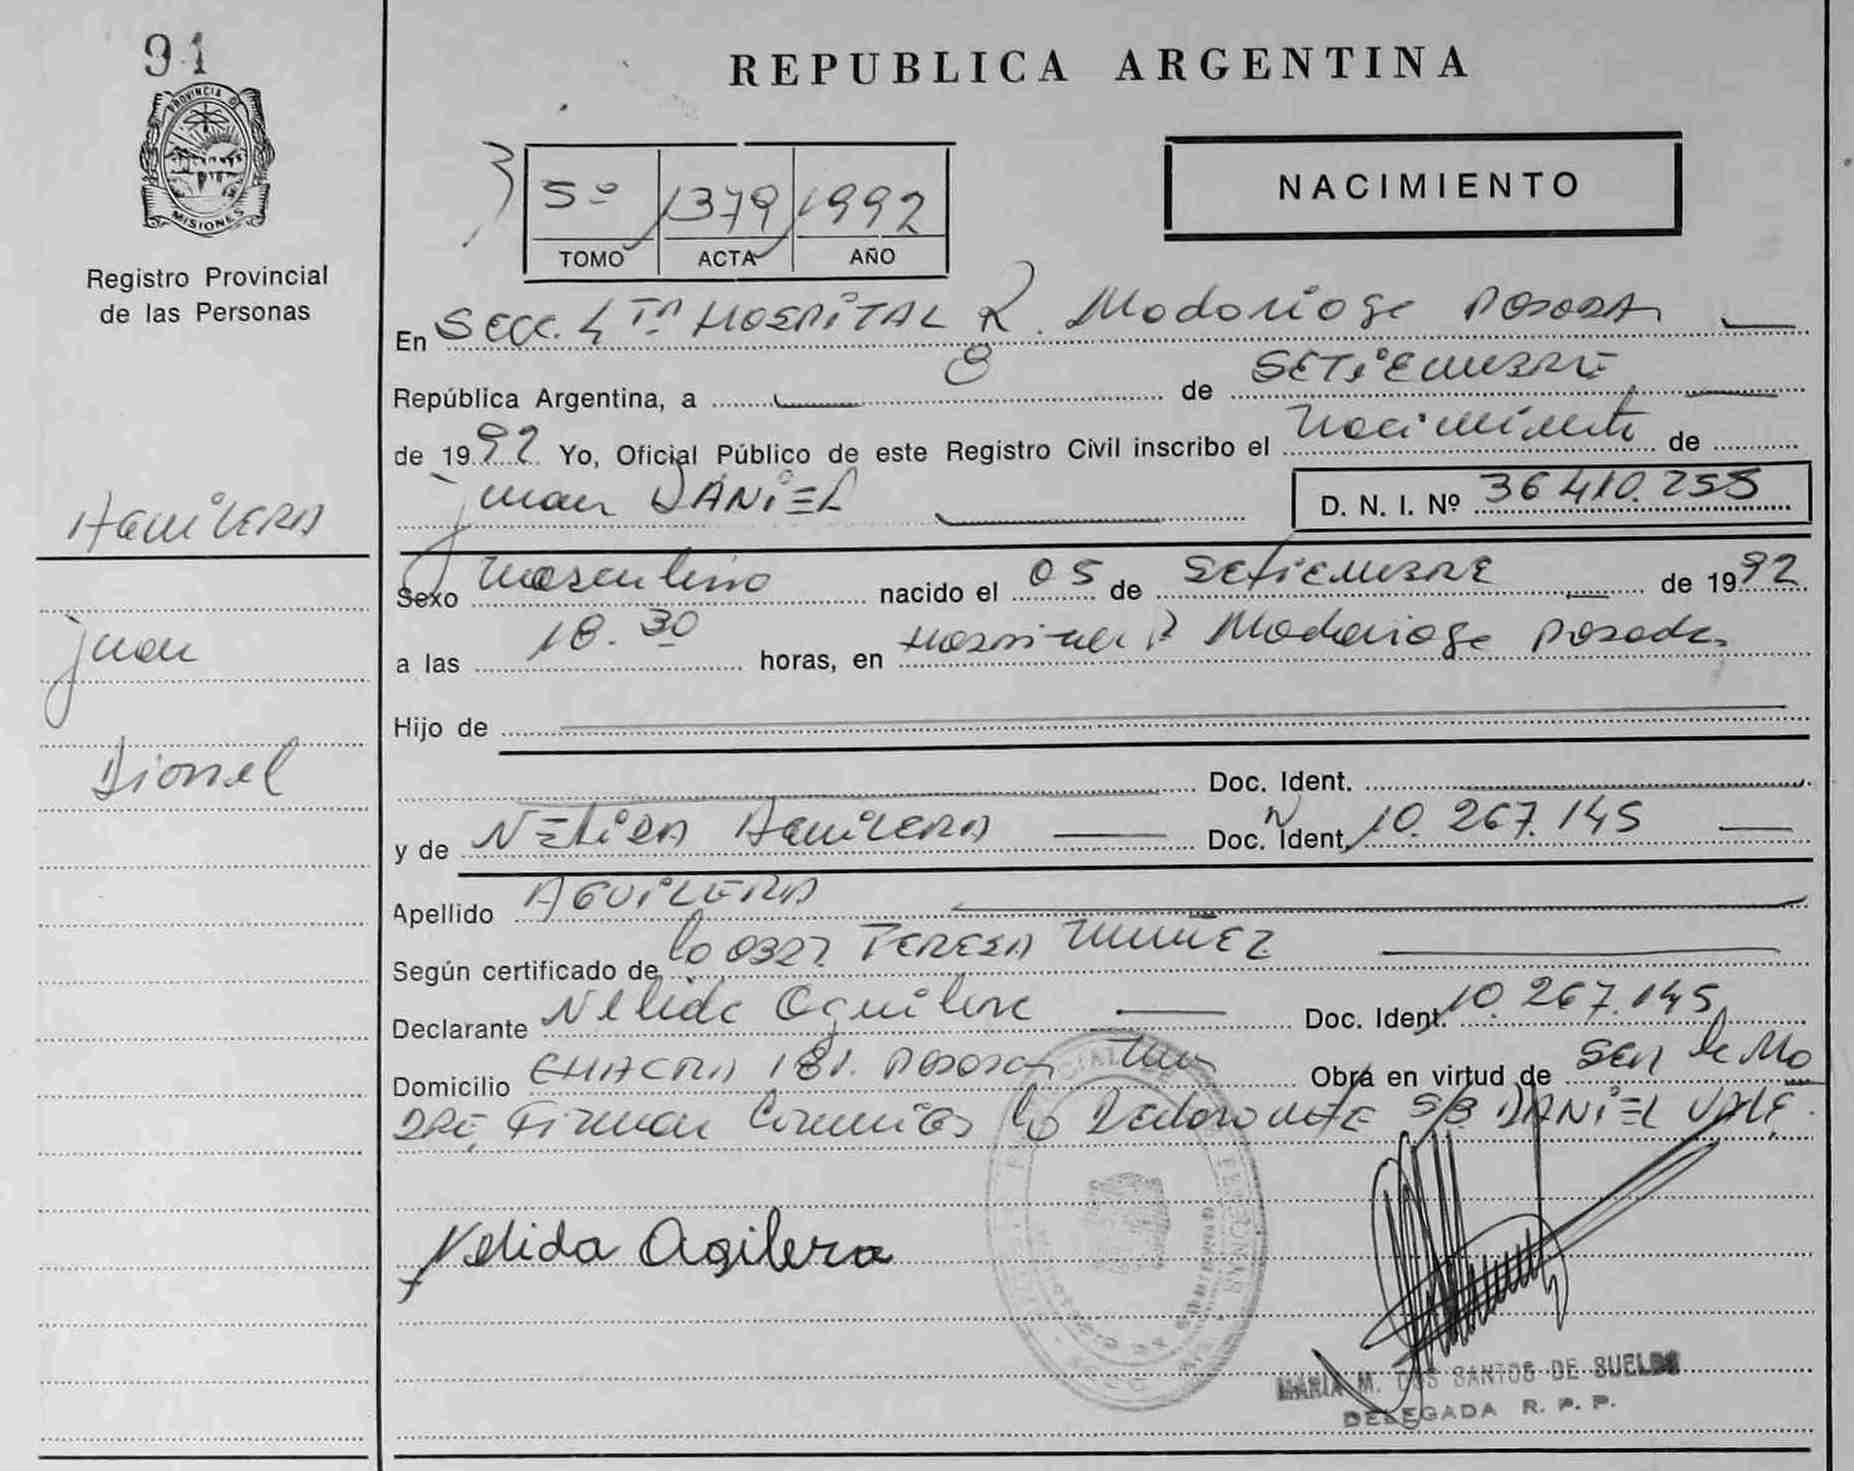 91
PROVINCIA D
MISIONES
Registro Provincial
de las Personas
AGUILERA
Juan
Daniel
REPUBLICA ARGENTINA
5º 1379 1992
TOMO ACTA AÑO
NACIMIENTO
En SECC. 4 TA HOSPITAL R. Madariaga Posadas
República Argentina, a 8 de SETIEMBRE
de 1992 Yo, Oficial Público de este Registro Civil inscribo el Nacimiento de
Juan DANIEL D. N. I. Nº 36.410.255
Sexo Masculino nacido el 05 de SETIEMBRE de 1992
a las 18.30 horas, en Hospital R Madariaga Posadas
Hijo de
Doc. Ident.
y de NELIDA AGUILERA Doc. Ident. 10.267.145
Apellido AGUILERA
Según certificado de la 0327 TERESA NUÑEZ
Declarante Nelida Aguilera Doc. Ident. 10.267.145
Domicilio CHACRA 181. Posadas Mnes Obra en virtud de SER la MA
DRE, Firman Conmigo la Declarante S/B DANIEL VALE.
Nelida Agilera
MARIA M. DOS SANTOS DE SUELDO
DELEGADA R. P. P.